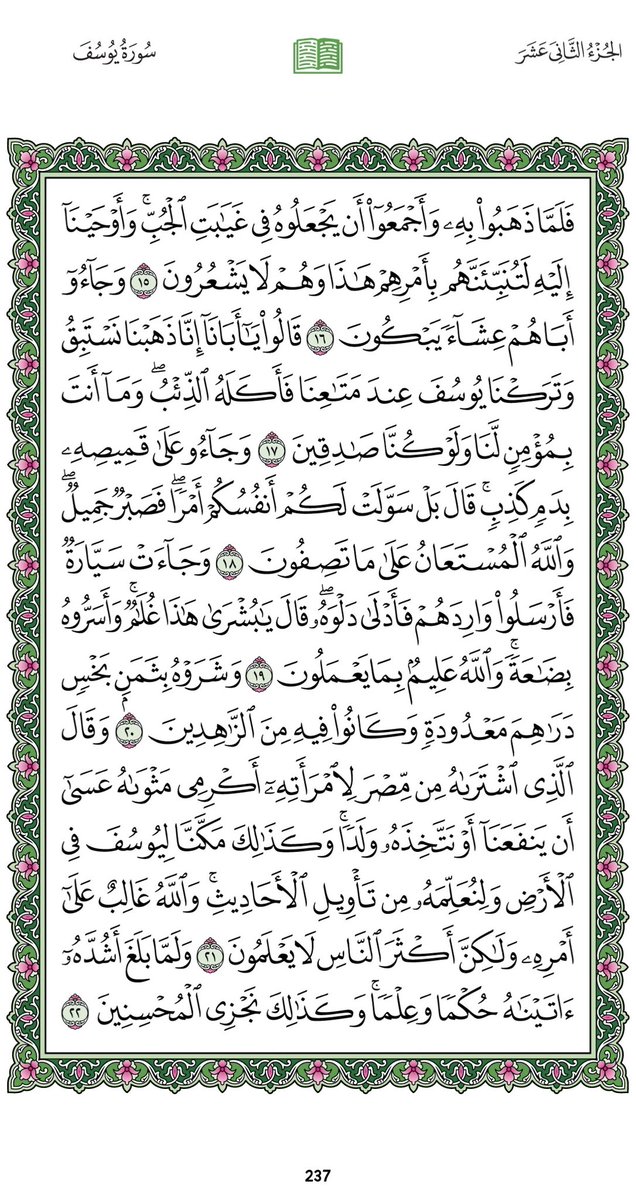 الجُزْءُ الثَّانِىَ عَشَرَ
سُورَةُ يُوسُفَ
فَلَمَّا ذَهَبُوا۟ بِهِۦ وَأَجْمَعُوٓا۟ أَن يَجْعَلُوهُ فِى غَيَـٰبَتِ ٱلْجُبِّ ۚ وَأَوْحَيْنَآ
إِلَيْهِ لَتُنَبِّئَنَّهُم بِأَمْرِهِمْ هَـٰذَا وَهُمْ لَا يَشْعُرُونَ ١٥ وَجَآءُوٓ
أَبَاهُمْ عِشَآءً يَبْكُونَ ١٦ قَالُوا۟ يَـٰٓأَبَانَآ إِنَّا ذَهَبْنَا نَسْتَبِقُ
وَتَرَكْنَا يُوسُفَ عِندَ مَتَـٰعِنَا فَأَكَلَهُ ٱلذِّئْبُ ۖ وَمَآ أَنتَ
بِمُؤْمِنٍ لَّنَا وَلَوْ كُنَّا صَـٰدِقِينَ ١٧ وَجَآءُو عَلَىٰ قَمِيصِهِۦ
بِدَمٍ كَذِبٍ ۚ قَالَ بَلْ سَوَّلَتْ لَكُمْ أَنفُسُكُمْ أَمْرًا ۖ فَصَبْرٌ جَمِيلٌ ۖ
وَٱللَّهُ ٱلْمُسْتَعَانُ عَلَىٰ مَا تَصِفُونَ ١٨ وَجَآءَتْ سَيَّارَةٌ
فَأَرْسَلُوا۟ وَارِدَهُمْ فَأَدْلَىٰ دَلْوَهُۥ ۖ قَالَ يَـٰبُشْرَىٰ هَـٰذَا غُلَـٰمٌ ۚ وَأَسَرُّوهُ
بِضَـٰعَةً ۚ وَٱللَّهُ عَلِيمٌۢ بِمَا يَعْمَلُونَ ١٩ وَشَرَوْهُ بِثَمَنٍۭ بَخْسٍ
دَرَٰهِمَ مَعْدُودَةٍ وَكَانُوا۟ فِيهِ مِنَ ٱلزَّٰهِدِينَ ٢٠ وَقَالَ
ٱلَّذِى ٱشْتَرَىٰهُ مِن مِّصْرَ لِٱمْرَأَتِهِۦٓ أَكْرِمِى مَثْوَىٰهُ عَسَىٰٓ
أَن يَنفَعَنَآ أَوْ نَتَّخِذَهُۥ وَلَدًا ۚ وَكَذَٰلِكَ مَكَّنَّا لِيُوسُفَ فِى
ٱلْأَرْضِ وَلِنُعَلِّمَهُۥ مِن تَأْوِيلِ ٱلْأَحَادِيثِ ۚ وَٱللَّهُ غَالِبٌ عَلَىٰٓ
أَمْرِهِۦ وَلَـٰكِنَّ أَكْثَرَ ٱلنَّاسِ لَا يَعْلَمُونَ ٢١ وَلَمَّا بَلَغَ أَشُدَّهُۥٓ
ءَاتَيْنَـٰهُ حُكْمًا وَعِلْمًا ۚ وَكَذَٰلِكَ نَجْزِى ٱلْمُحْسِنِينَ ٢٢
237